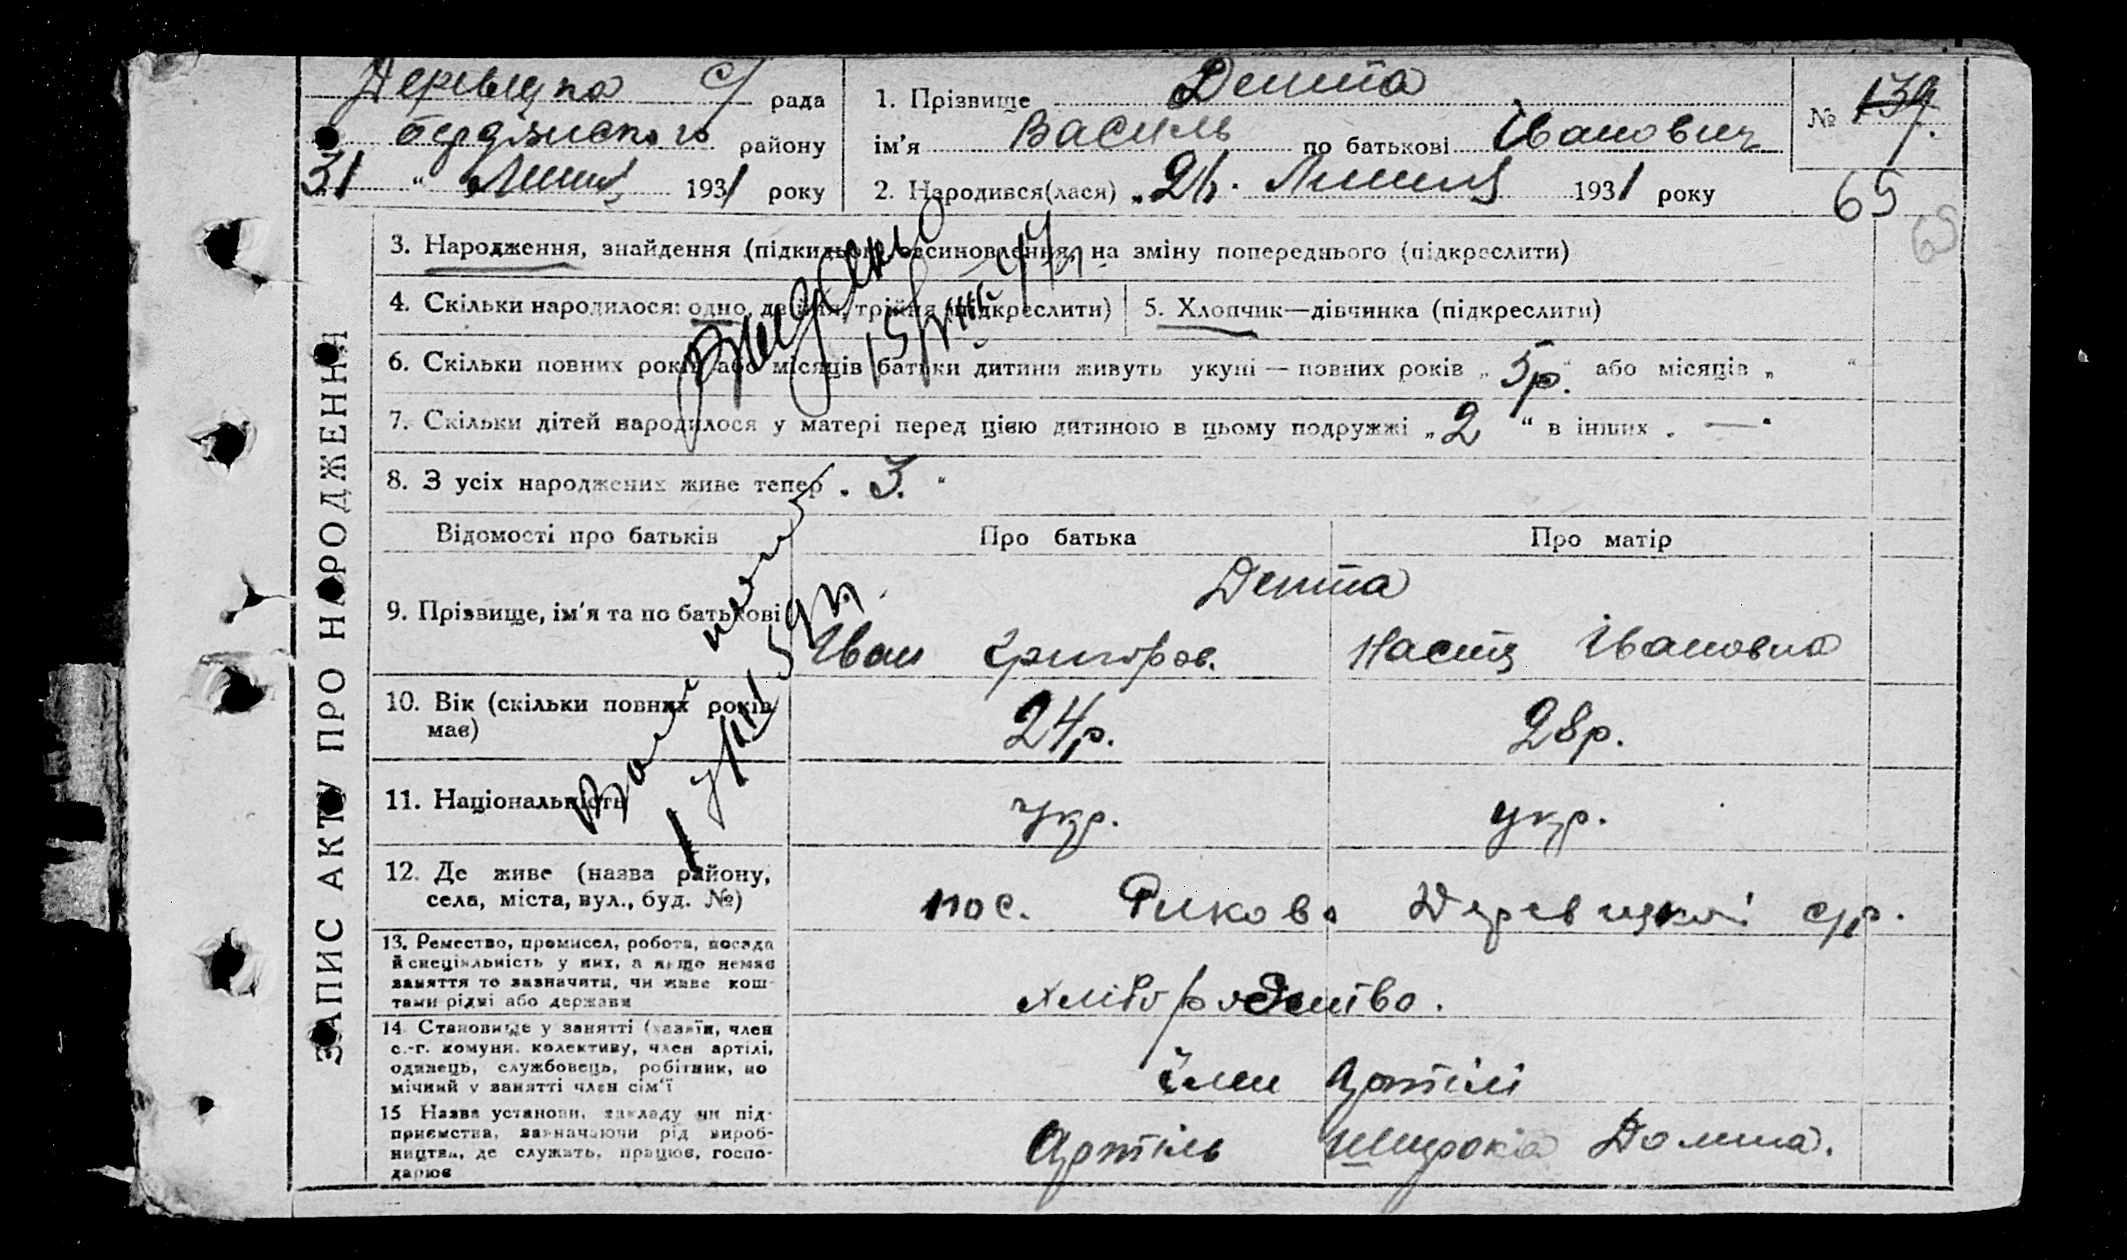 рада
району
31 " Липня 1931 року
1. Прізвище Депта
ім'я Василь по батькові Іванович
2. Народився(лася) „ Липня 1931 року
№ 139
65
65
ЗАПИС АКТУ ПРО НАРОДЖЕННЯ
3. Народження, знайдення (підкидьок) всиновлення, на зміну попереднього (підкреслити)
4. Скільки народилося: одно, двійня, трійня (підкреслити)
5. Хлопчик—дівчинка (підкреслити)
6. Скільки повних років або місяців батьки дитини живуть укупі — повних років „ 5р. " або місяців „ "
7. Скільки дітей народилося у матері перед цією дитиною в цьому подружжі „ 2 " в інших „ — "
8. З усіх народжених живе тепер „ 3. "
Відомості про батьків
Про батька
Про матір
9. Прізвище, ім'я та по батькові
Депта
Іван Григоров.
Настя Івановна
10. Вік (скільки повних років має)
24р.
28р.
11. Національність
укр.
укр.
12. Де живе (назва району,
села, міста, вул., буд. №)
пос. Рикова с/р.
13. Ремество, промисел, робота, посада
й спеціяльність у них, а якщо немає
заняття то зазначити, чи живе кош-
тами рідні або держави
хліборобство.
14. Становище у занятті (хазяїн, член
с.-г. комуни, колективу, член артілі,
одинець, службовець, робітник, по
мічний у занятті член сім'ї
член артілі
15 Назва установи, закладу чи під-
приємства, зазначаючи рід вироб-
ництва, де служить, працює, госпо-
дарює
Артіль Широка Долина.